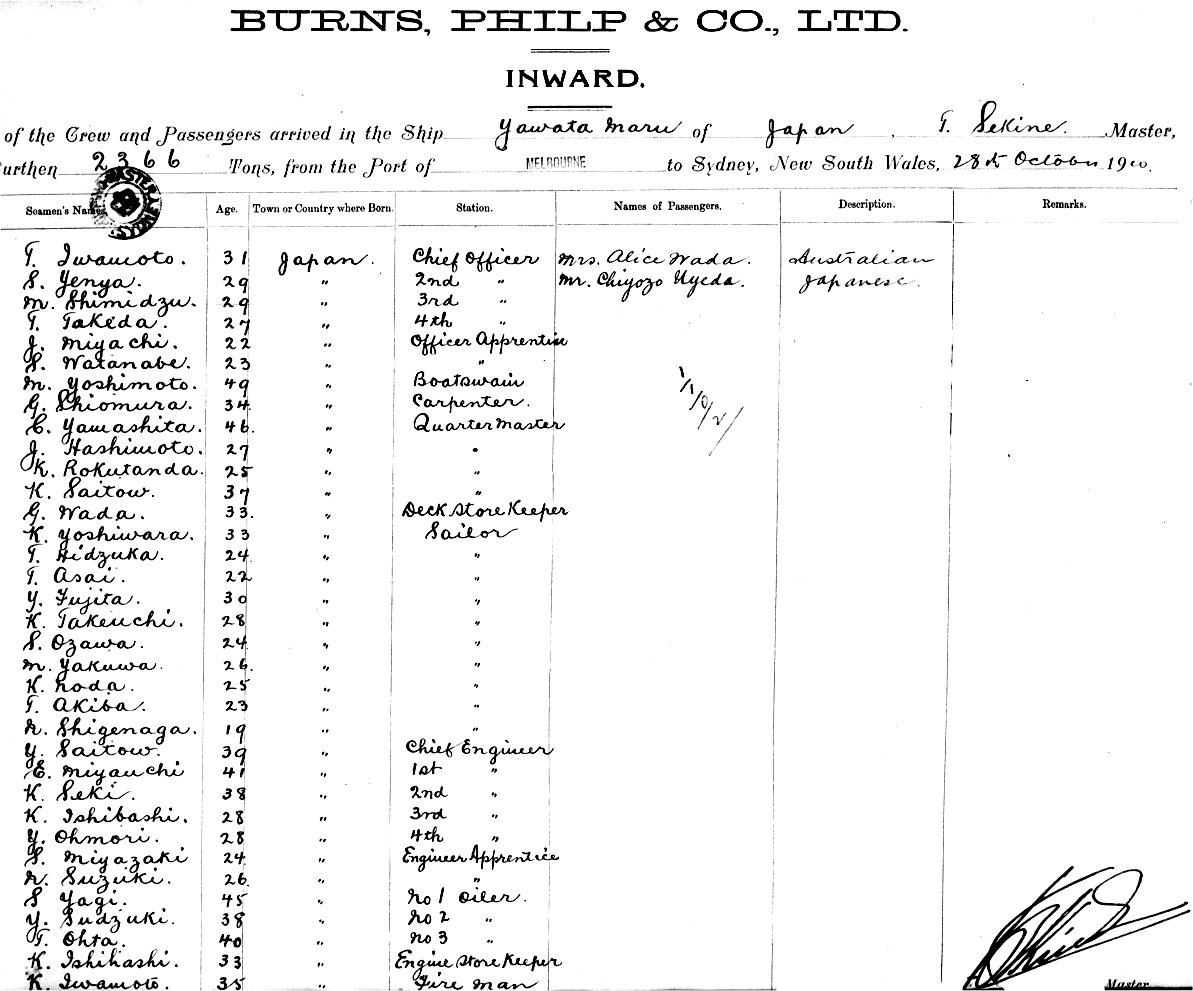 BURNS, PHILP & CO., LTD.
INWARD.
of the Crew and Passengers arrived in the Ship Yawata Maru of Japan, T. Sekine. Master,
urthen 2366 Tons, from the Port of MELBOURNE to Sydney, New South Wales, 28th October 1910.
Seamen's Names Age. Town or Country where Born. Station. Names of Passengers. Description. Remarks.
T. Iwamoto. 31 Japan. Chief Officer Mrs. Alice Wada. Australian
S. Yenya. 29 " 2nd " Mr. Chiyozo Uyeda. Japanese.
M. Shimidzu. 29 " 3rd "
T. Takeda. 27 " 4th "
J. Miyachi. 22 " Officer Apprentice
S. Watanabe. 23 " "
M. Yoshimoto. 49 " Boatswain
G. Shiomura. 34 " Carpenter.
C. Yamashita. 46. " Quarter Master
J. Hashimoto. 27 " "
K. Rokutanda. 25 " "
K. Saitow. 37 " "
G. Wada. 33. " Deck Store Keeper
K. Yoshiwara. 33 " Sailor
T. Hidzuka. 24 " "
T. Asai. 22 " "
Y. Fujita. 30 " "
K. Takeuchi. 28 " "
S. Ozawa. 24 " "
M. Yakuwa. 26. " "
K. Noda. 25 " "
T. Akiba. 23 " "
N. Shigenaga. 19 " "
Y. Saitow. 39 " Chief Engineer
E. Miyauchi 41 " 1st "
K. Seki. 38 " 2nd "
K. Ishibashi. 28 " 3rd "
Y. Ohmori. 28 " 4th "
S. Miyazaki 24 " Engineer Apprentice
N. Suzuki. 26. " "
S Yagi. 45 " No 1 Oiler.
Y. Sudzuki. 38 " No 2 "
T. Ohta. 40 " No 3 "
K. Ishihashi. 33 " Engine Store Keeper
K. Iwamoto. 35 " Fire man
Master